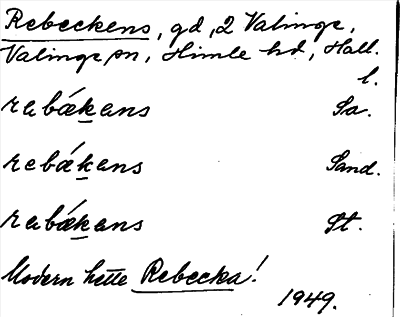 Rebeckens, gd, 2 Valinge,
Valinge sn, Himle hd, Hall.
l.
rabǽkans Sa.
rebǽkens Sand.
rabǽkans St.
Modern hette Rebecka!
1949.